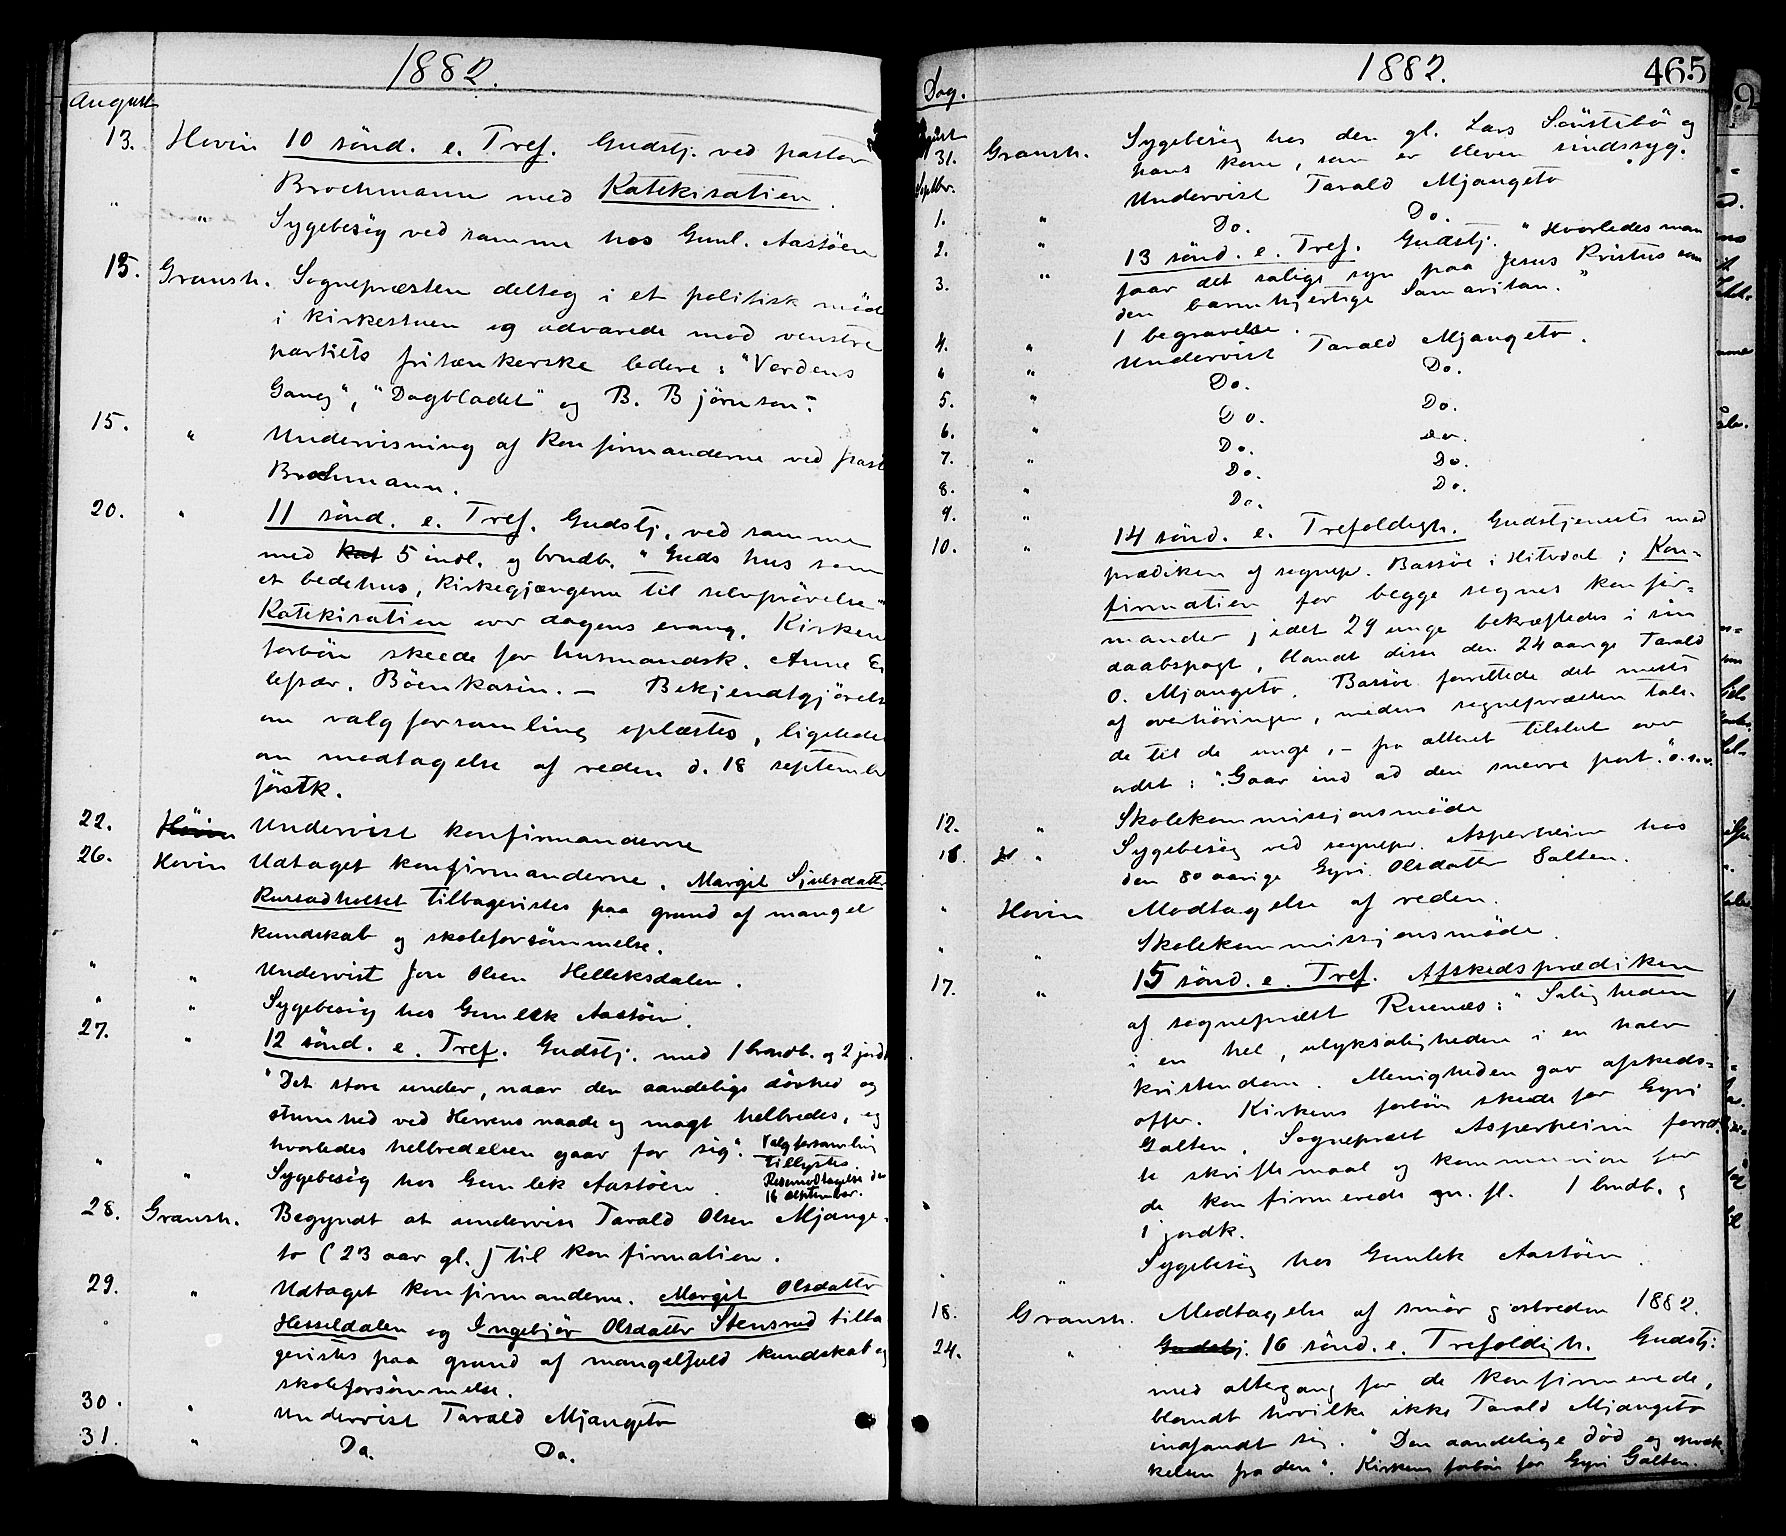 1882.
August
13. Hovin 10 sönd. e. Tref. Gudstj. ved pastor
Brochmann med Katekisation.
" " Sygebesög ved samme hos Gunl. Aastöen
15. Gransh. Sognepræsten deltog i et politisk möde
i kirkestuen og advarede mod venstre
partiets fritænkerske ledere: "Verdens
Gang", "Dagbladet" og B. Björnson.
15. " Undervisning af konfirmanderne ved past
Brochmann.
20. " 11 sönd. e. Tref. Gudstj. ved samme
med kat 5 indl. og brudb. "Guds hus som
et bedehus, kirkegjængerne til selvprövelse"
Katekisation over dagens evang. Kirkens
forbön skeede for husmandsk. Anne
Böenkasin. — Bekjendtgjörelse
om valgforsamling oplæstes, ligeledes
om modtagelse af reden d. 18 septembr
förstk.
22. Hovin Undervist konfirmanderne
26. Hovin Udtaget konfirmanderne. Margit Sjulsdatter
tilbagevistes paa grund af mangel
kundskab og skoleforsömmelse.
" " Undervist Jon Olsen Helleksdalen.
" " Sygebesög hos Gunlek Aastöen.
27. " 12 sönd. e. Tref. Gudstj. med 1 brudb. og 2 jordk
"Det store under, naar den aandelige dövhed og
stumhed ved Herrens naade og magt helbredes, og
hvorledes helbredelsen gaar for sig". Valgforsamling
tillystes.
" " Sygebesög hos Gunlek Aastöen. Redemodtagelse den
16 september.
28. Gransh. Begyndt at undervise Tarald Olsen Mjange-
to (23 aar gl.) til konfirmation.
29. " Udtaget konfirmanderne. Margit Olsdatter
Hesseldalen og Ingebjör Olsdatter Stensrud tilba
gevistes paa grund af mangelfuld kundskab og
skoleforsömmelse.
30. " Undervist Tarald Mjangeto
31. " Do. Do.
1882. 465
Dag.
August
31. Gransh. Sygebesög hos den gl. Lars Söustebö og
hans kone, som er bleven sindssyg.
Septbr. Undervist Tarald Mjangeto
1. " Do. Do.
2. " 13 sönd. e. Tref. Gudstj. "Hvorledes man
3. " faar det salige syn paa Jesus Kristus som
den barmhjertige Samaritan."
1 begravelse.
4. " Undervist Tarald Mjangeto.
" " Do. Do.
5. " Do. Do.
6. " Do. Do.
7. " Do. Do.
8. " Do. Do.
9. "
10. " 14 sönd. e. Trefoldigh. Gudstjeneste med
prædiken af sognepr. Bassöe i Hitedal; Kon-
firmation for begge sognes konfir-
mander, idet 29 unge bekræftedes i sin
daabspagt, blandt disse den 24 aarige Tarald
O. Mjangeto. Bassöe forrettede det meste
af overhöringen, medens sognepræsten tale-
de til de unge, – fra alteret tilslut over
ordet: "Gaar ind ad den snevre port." o.s.v.
12. " Skolekommissjonsmöde
16. " Sygebesög ved sognepr. Asperheim hos
den 80 aarige Gyri Olsdatter Galten.
" Hovin Modtagelse af reden.
" " Skolekommissjonsmöde.
17. " 15 sönd. e. Tref. Afskedsprædiken
af sognepræst Ruenæs: "Saligheden
i en hel, ulyksaligheden i en halv
kristendom. Menigheden gav afskeds-
offer. Kirkens forbön skede for Gyri
Galten. Sognepræst Asperheim forret
te skriftemaal og kommunion for
de konfirmerede m. fl. 1 brudb. og
1 jordk.
" Sygebesög hos Gunlek Aastöen
18. Gransh. Modtagelse af smör og ostreden 1882.
24. " Gudstj. 16 sönd. e. Trefoldigh. Gudstj.
med altergang for de konfirmerede,
blandt hvilke ikke Tarald Mjangeto
indfandt sig. "Den aandelige död og opvæk
kelsen fra den". Kirkens forbön for Gyri Galten.